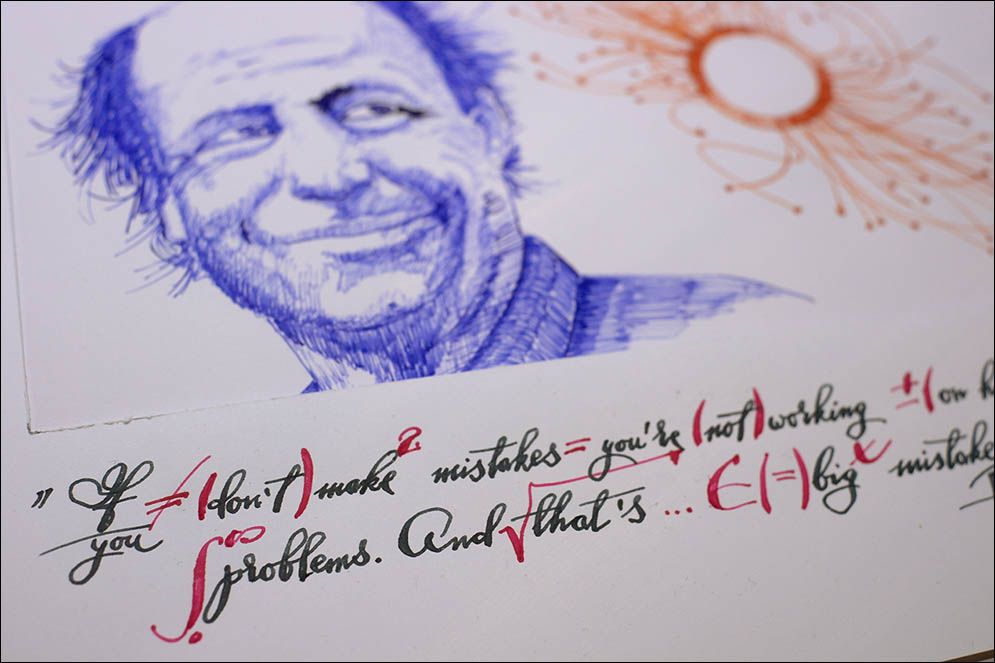 „ If/you ≠ (don't) make² mistakes = you're (not) working ± (on
∫∞ problems. And √that's ... ∈(=) bigˣ mistake